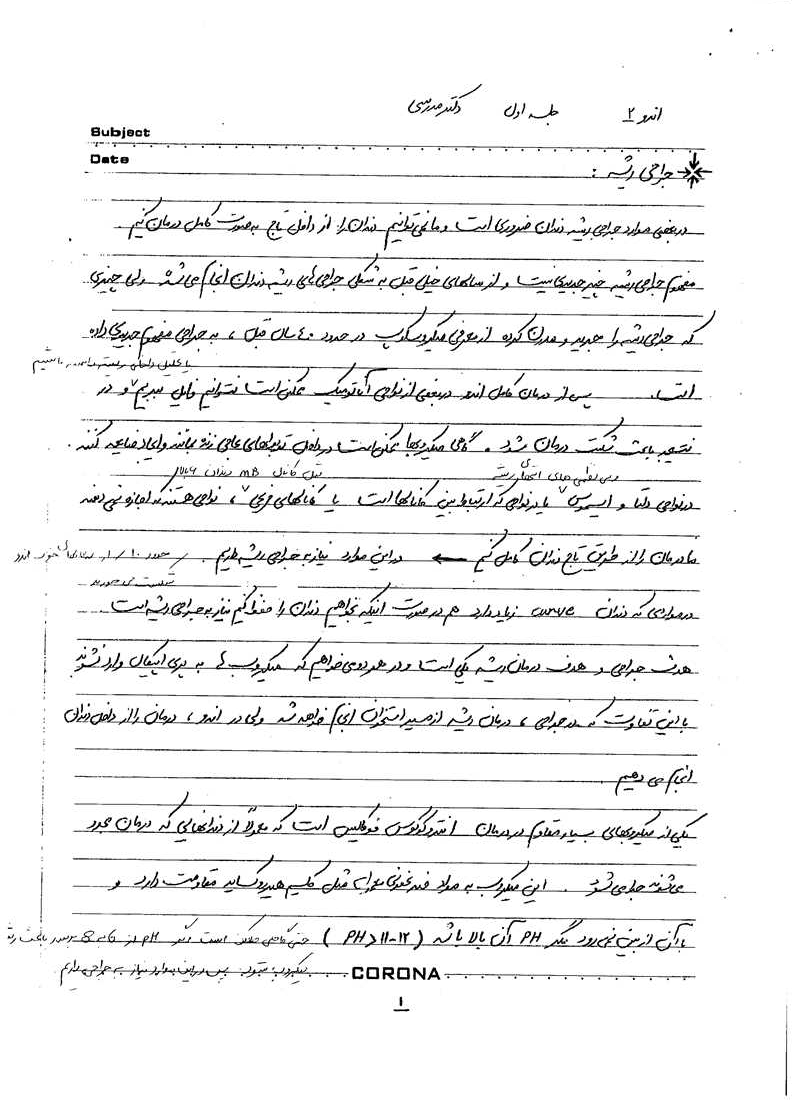 اندو ۲ جلسه اول دکتر مدرسی
Subject
Date
جراحی ریشه :
در بعضی موارد جراحی ریشه دندان ضروری است و ما نمی توانیم دندان را از داخل تاج به صورت کامل درمان کنیم.
مفهوم جراحی ریشه چیز جدیدی نیست و از سالهای خیلی قبل به شکلی جراحی های ریشه دندان انجام می شد. ولی چیزی
که جراحی ریشه را جدید و مدرن کرده از معرفی میکروسکوپ در حدود ۴۰ سال قبل ، به جراحی مفهوم جدیدی داده
یا تحلیل داخلی ریشه داشته باشیم
است. پس از درمان کامل اندو در بعضی از نواحی آناتومیک ممکن است نتوانیم فایل ببریم و در
نتیجه باعث شکست درمان شود. گاهی میکروبها ممکن است در داخل توبولهای عاجی زنده بمانند و ایجاد ضایعه کنند.
انتهای ریشه مثل کانال MB دندان
در نواحی دلتا و ایسموس یا در نواحی که ارتباط بین کانالها است یا کانالهای فرعی ، نواحی هستند که اجازه نمی دهند
ما درمان را از طریق تاج دندان کامل کنیم ← در این موارد نیاز به جراحی ریشه داریم. حدود ۱۰٪ از درمانهای اندو
شکست می خورند
در مواردی که دندان curve زیاد دارد هم در صورت اینکه بخواهیم دندان را حفظ کنیم نیاز به جراحی ریشه است
هدف جراحی و هدف درمان ریشه یکی است و در هر دو می خواهیم که میکروب ها به پری اپیکال وارد نشوند
با این تفاوت که در جراحی ، درمان ریشه از مسیر استخوان انجام خواهد شد ولی در اندو ، درمان را از داخل دندان
انجام می دهیم.
یکی از میکروبهای بسیار مقاوم در درمان انتروکوکوس فوکالیس است که معمولاً از دندانهایی که درمان مجدد
می شوند جدا می شود. این میکروب به مواد ضدعفونی مجرای مثل کلسیم هیدروکساید مقاومت دارد و
با آن از بین نمی رود مگر PH آن بالا باشد (PH > ۱۱-۱۲) حتی گاهی ممکن است PH از 6 به 8 برسد باعث رشد
میکروب شود. پس در این موارد نیاز به جراحی داریم
CORONA
۱